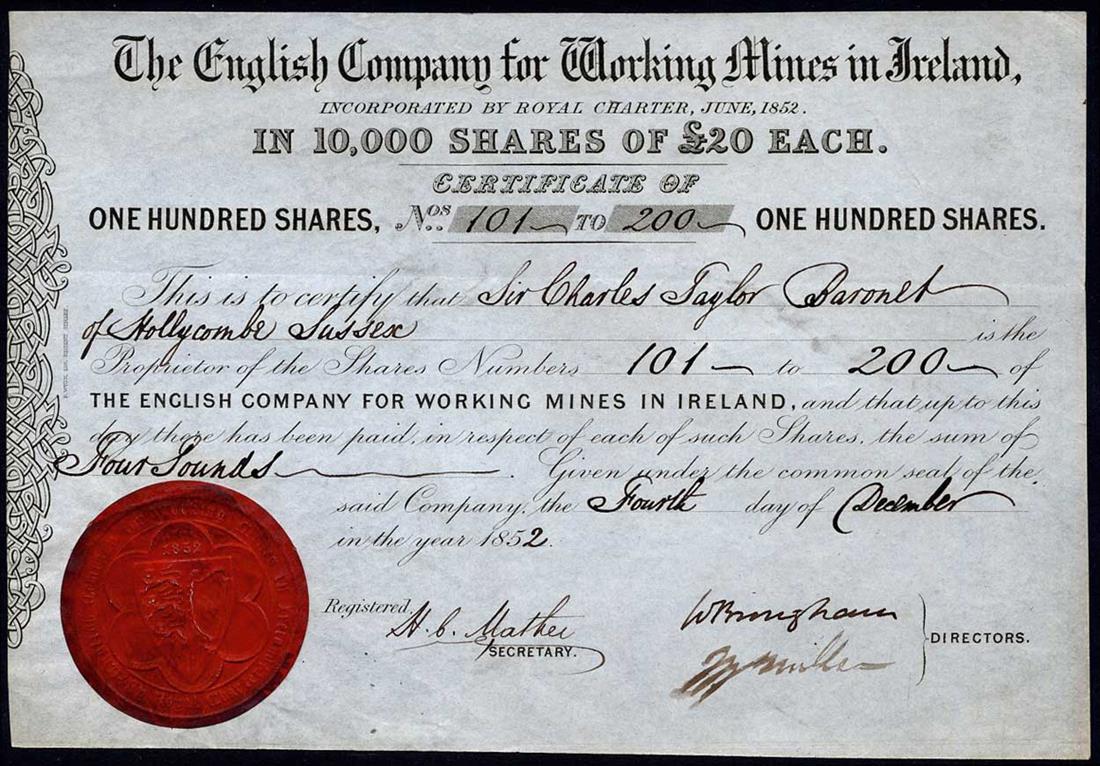 The English Company for Working Mines in Ireland,
INCORPORATED BY ROYAL CHARTER, JUNE, 1852.
IN 10,000 SHARES OF £20 EACH.
CERTIFICATE OF
ONE HUNDRED SHARES, Nos. 101 TO 200 ONE HUNDRED SHARES.
This is to certify that Sir Charles Taylor Baronet
of Hollycombe Sussex is the
Proprietor of the Shares Numbers 101 to 200 of
THE ENGLISH COMPANY FOR WORKING MINES IN IRELAND, and that up to this
day there has been paid, in respect of each of such Shares, the sum of
Four Pounds. Given under the common seal of the
said Company, the Fourth day of December
in the year 1852.
1852
Registered,
H. C. Mather
SECRETARY.
DIRECTORS.